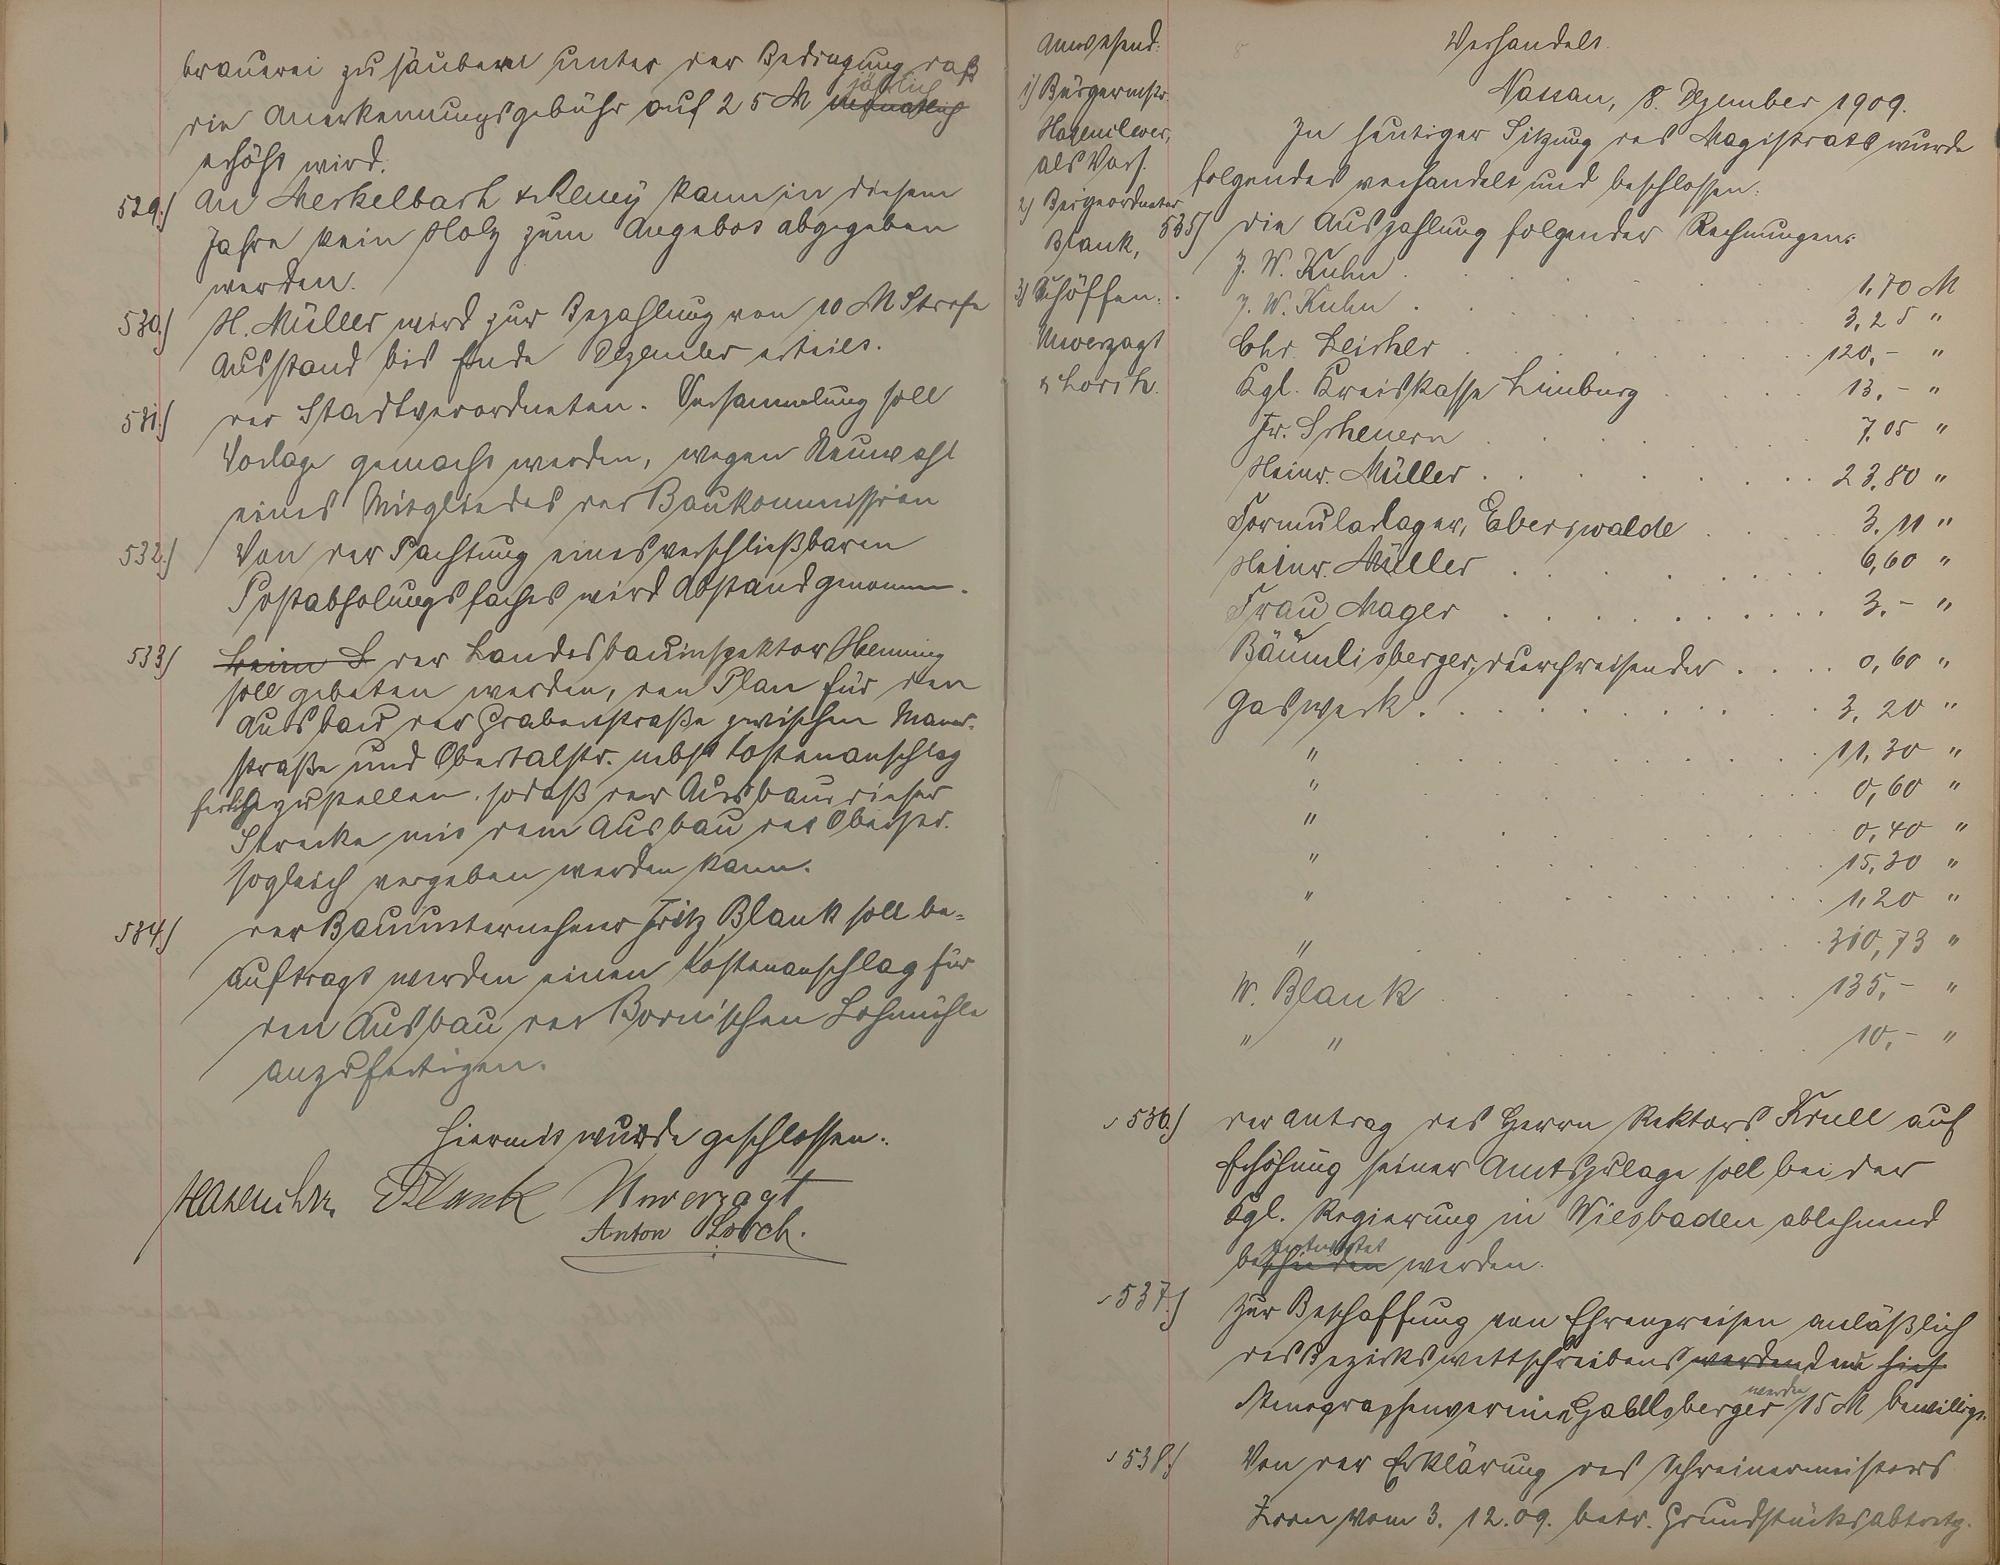 brauerei zu säubern unter der Bedingung daß
die Anerkennungsgebühr auf 25 M monatlich jährlich
erhöht wird.
529.) An Merkelbach & Remy kann in diesem
Jahre kein Holz zum Angebot abgegeben
werden.
530.) H. Müller wird zur Bezahlung von 10 M Strafe
Ausstand bis Ende Dezember erteilt.
531.) der Stadtverordneten-Versammlung soll
Vorlage gemacht werden, wegen Neuwahl
eines Mitgliedes der Baukommission
532.) Von der Pachtung eines verschließbaren
Postabholungsfaches wird Abstand genommen.
533.) der Landesbauinspektor Henning
soll gebeten werden, den Plan für den
Ausbau der Grabenstraße zwischen Mauer-
straße und Obertalstr. nebst Kostenanschlag
fertigzustellen, sodaß der Ausbau dieser
Strecke mit dem Ausbau der Oberstr.
sogleich vergeben werden kann.
534.) der Bauunternehmer Fritz Blank soll be-
auftragt werden einen Kostenanschlag für
den Ausbau der Bornischen Lohmühle
anzufertigen.
Hiermit wurde geschlossen.
Blank Unverzagt
Anton Lorch.
Anwesend:
1) Bürgermstr.
Hasenclever,
als Vors.
2) Beigeordneter
Blank,
3) Schöffen:
Unverzagt
" Lorch.
Verhandelt.
Nassau, 8. Dezember 1909.
In heutiger Sitzung des Magistrats wurde
folgendes verhandelt und beschlossen:
535) die Auszahlung folgender Rechnungen:
J. W. Kuhn . . . 1,70 M
J. W. Kuhn . . . 3,25 "
Chr. Leicher . . . 120,- "
Kgl. Kreiskasse Limburg . . . 13,- "
Fr. Scheuern . . . 7,05 "
Heinr. Müller . . . 23,80 "
Formularlager, Eberswalde . . . 3,11 "
Heinr. Müller . . . 6,60 "
Frau Mager . . . 3,- "
Bäumlisberger, durchreisender . . . 0,60 "
Gaswerk . . . 3,20 "
" . . . 11,30 "
" . . . 0,60 "
" . . . 0,40 "
" . . . 15,30 "
" . . . 1,20 "
" . . . 310,73 "
W. Blank . . . 135,- "
" " . . . 10,- "
536.) der Antrag des Herrn Rektors Krull auf
Erhöhung seiner Amtszulage soll bei der
Kgl. Regierung in Wiesbaden ablehnend
beschieden werden.
537.) Zur Beschaffung von Ehrenpreisen anläßlich
des Bezirkswettschreibens werden dem hies
Stenographenverein Gabelsberger werden 15 M bewilligt.
538.) Von der Erklärung des Schreinermeisters
Zorn vom 3. 12. 09. betr. Grundstücksabtretg.